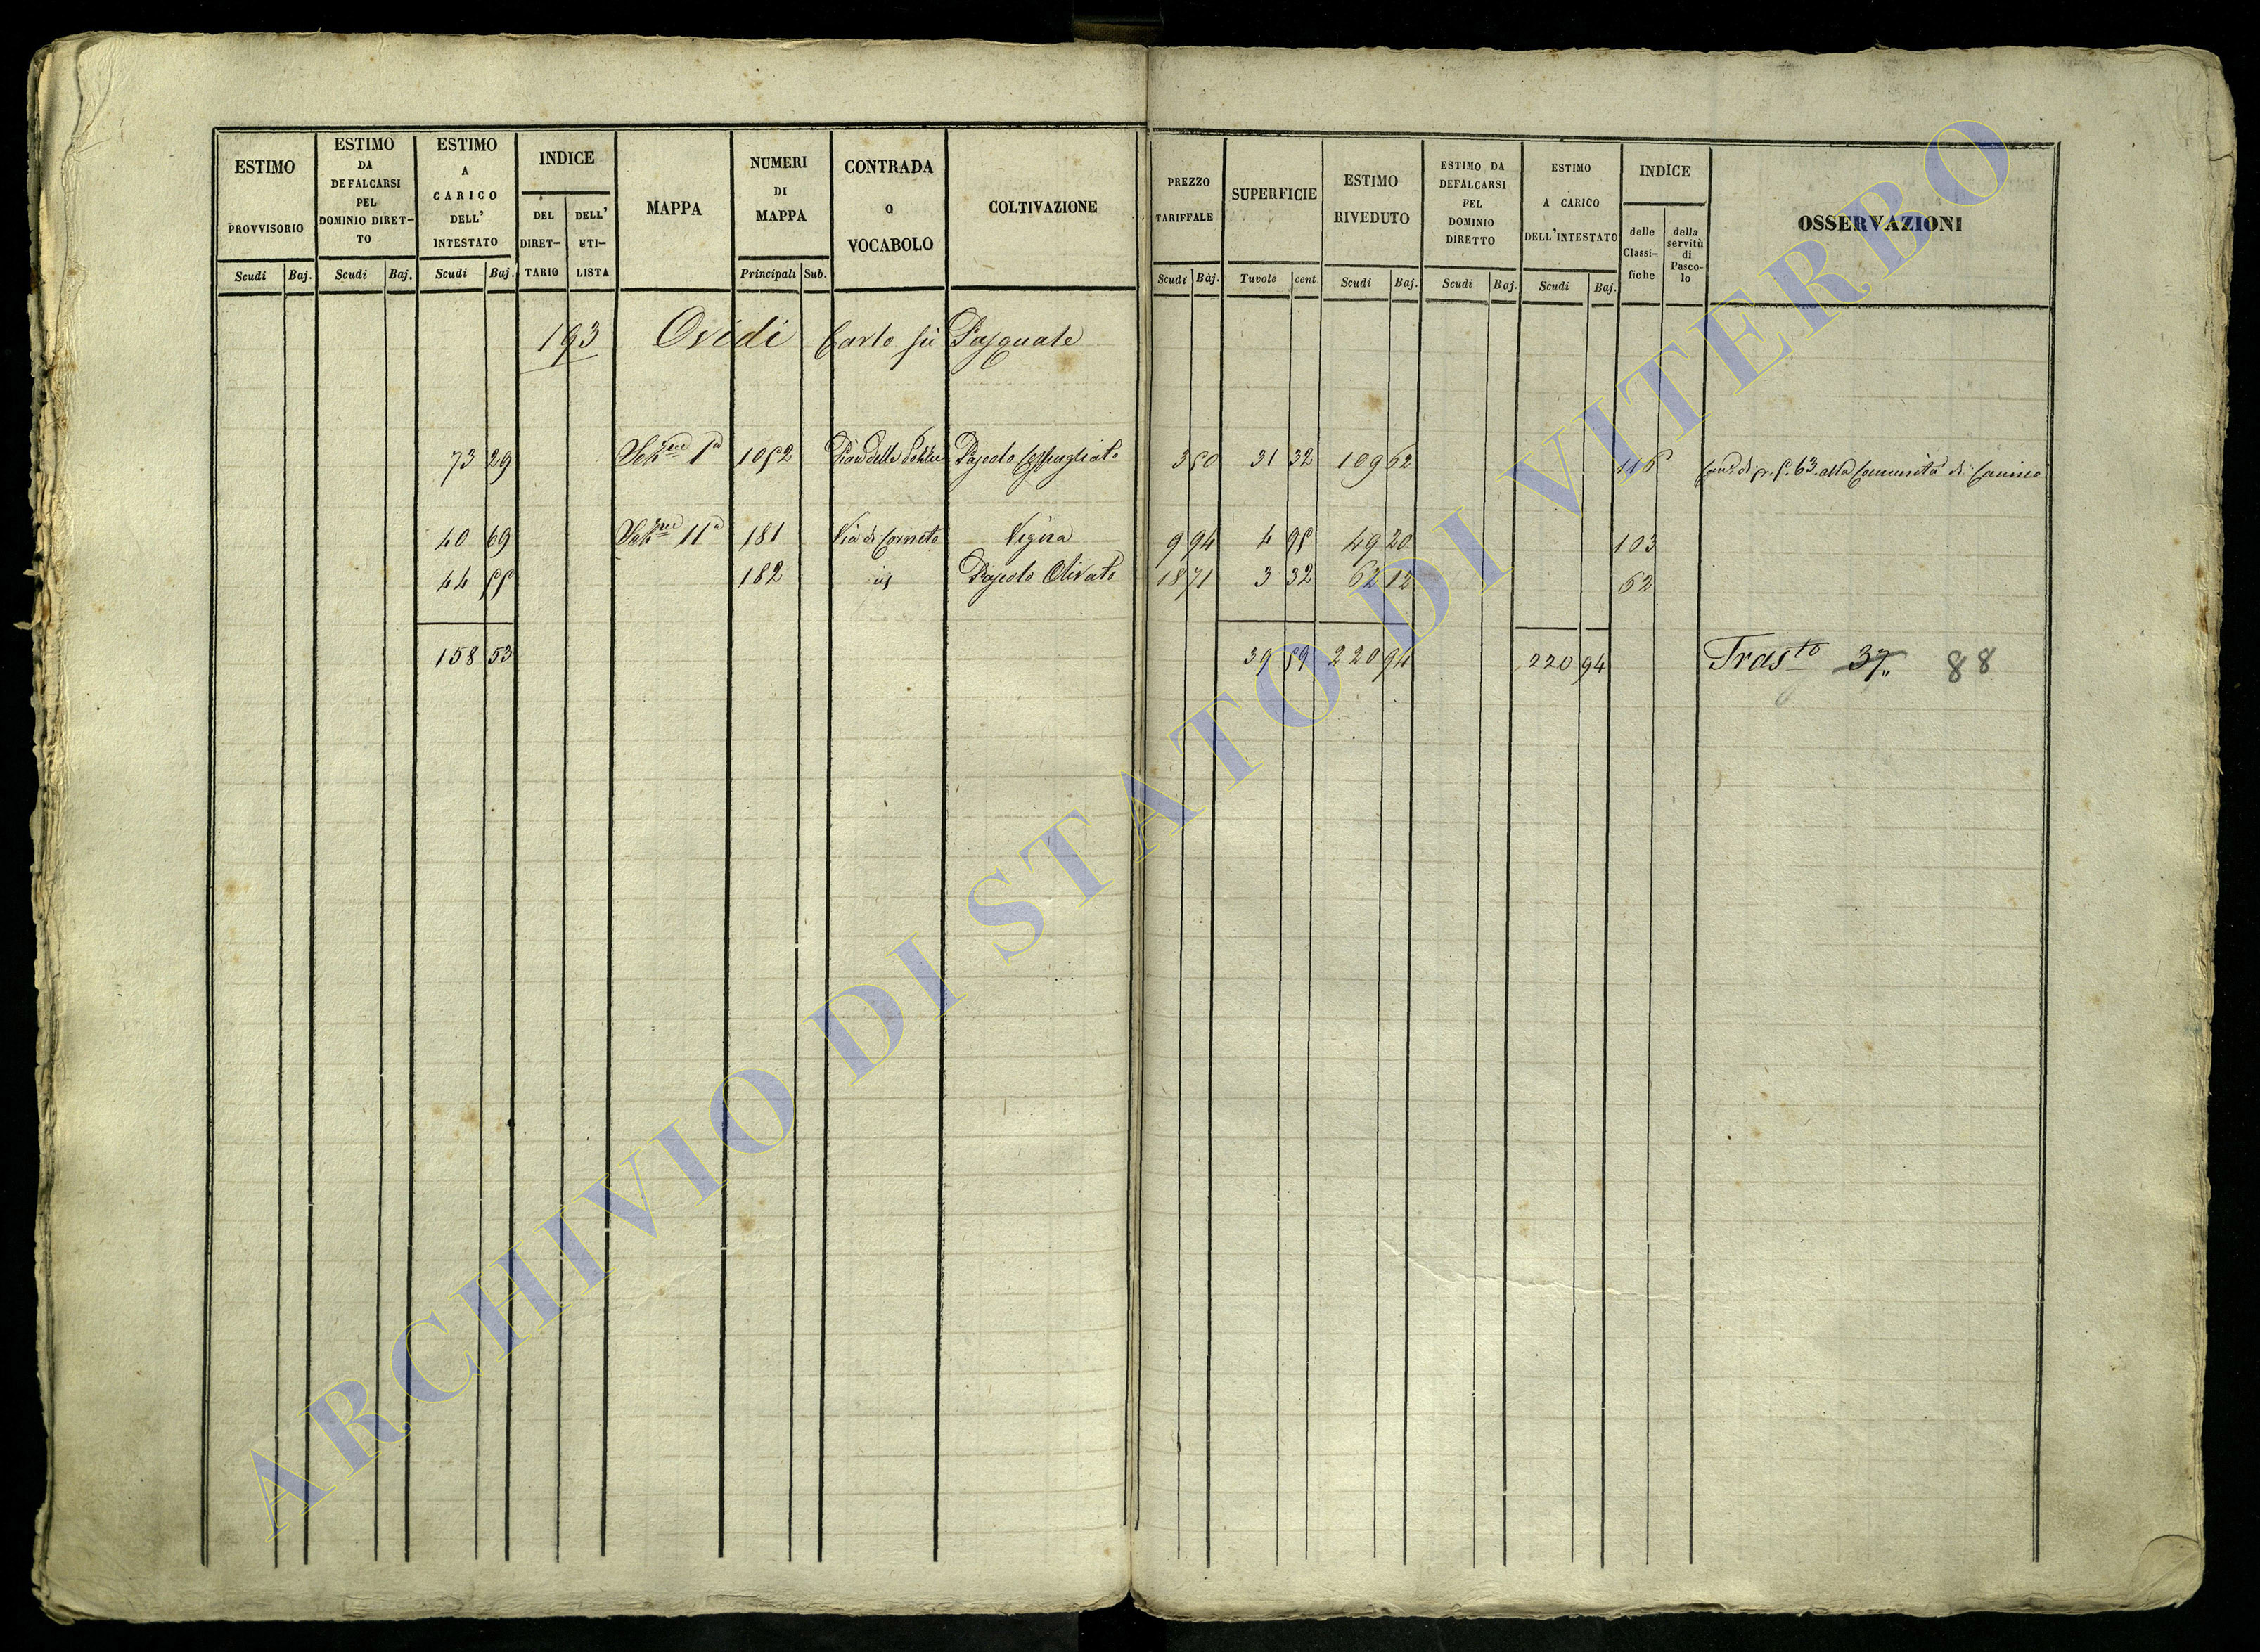 ESTIMO PROVVISORIO Scudi Baj. | ESTIMO DA DEFALCARSI PEL DOMINIO DIRET-TO Scudi Baj. | ESTIMO A CARICO DELL' INTESTATO Scudi Baj. | INDICE DEL DIRET-TARIO DELL' UTI-LISTA | MAPPA | NUMERI DI MAPPA Principali Sub. | CONTRADA O VOCABOLO | COLTIVAZIONE | PREZZO TARIFFALE Scudi Baj. | SUPERFICIE Tavole cent | ESTIMO RIVEDUTO Scudi Baj. | ESTIMO DA DEFALCARSI PEL DOMINIO DIRETTO Scudi Baj. | ESTIMO A CARICO DELL'INTESTATO Scudi Baj. | INDICE delle Classi-fiche della servitù di Pasco-lo | OSSERVAZIONI
193 Ovidi Carlo fù Pasquale
73 29 Sezne 1a 1052 Pian delle Pascolo Cespugliato 3 50 31 32 109 62 116 alla Comunità di Canino
40 69 Sezne 11a 181 Via di Corneto Vigna 9 94 4 95 49 20 103
44 55 182 id Pascolo Olivato 18 71 3 32 62 12 62
158 53 39 59 220 94 220 94 Trasto 37 88
ARCHIVIO DI STATO DI VITERBO